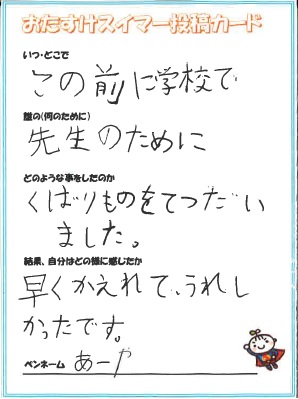 おたすけスイマー投稿カード
いつ・どこで
この前に学校で
誰の(何のために)
先生のために
どのような事をしたのか
くばりものをてつだい
ました。
結果、自分はどの様に感じたか
早くかえれて、うれし
かったです。
ペンネーム あーや